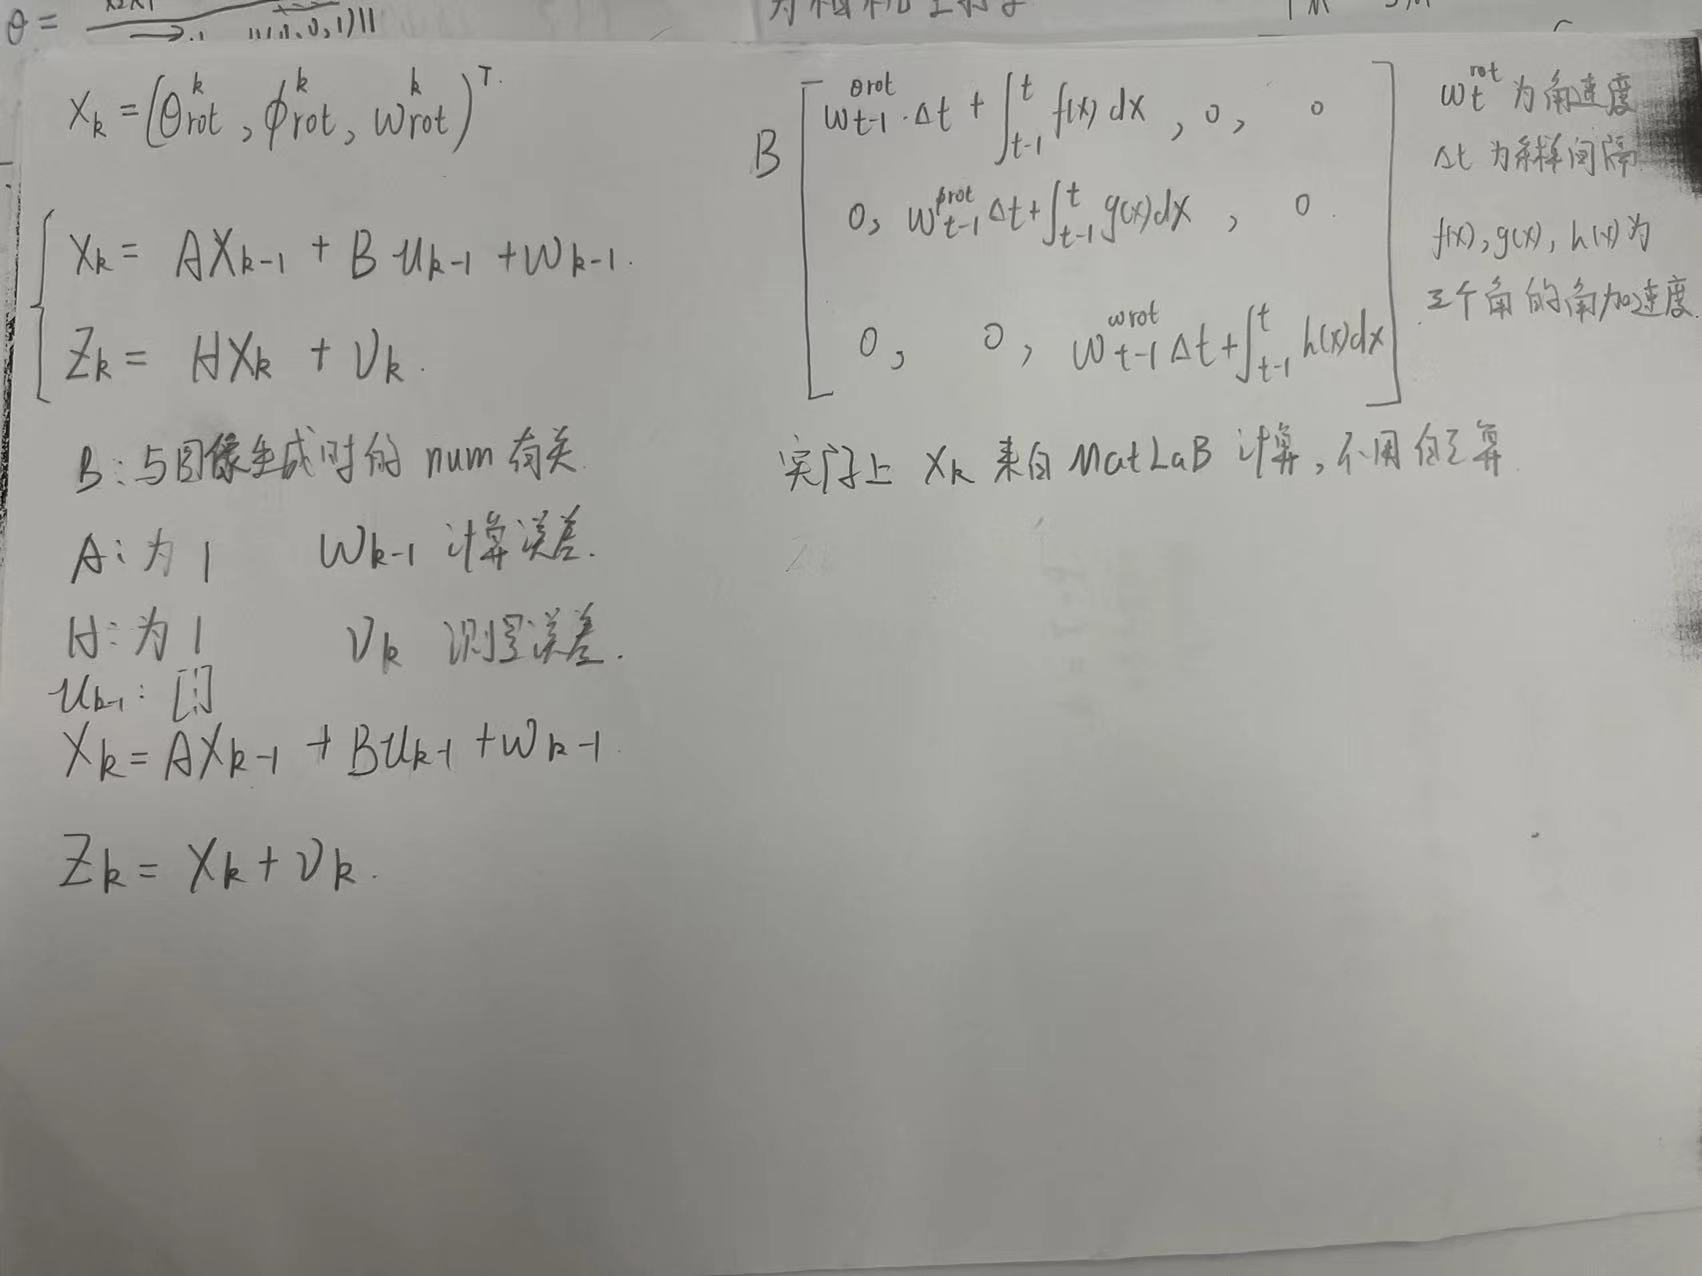 θ =
X_k = (θ_rot^k, ϕ_rot^k, ω_rot^k)^T.
X_k = A X_{k-1} + B u_{k-1} + w_{k-1}.
Z_k = H X_k + v_k.
B: 与图像生成时的 num 有关
A: 为 1 w_{k-1} 计算误差.
H: 为 1 v_k 测量误差.
u_{k-1}: [⋮]
X_k = A X_{k-1} + B u_{k-1} + w_{k-1}.
Z_k = X_k + v_k.
B
w_{t-1}^{θrot} · Δt + ∫_{t-1}^{t} f(x) dx , 0, 0
0, w_{t-1}^{ϕrot} Δt + ∫_{t-1}^{t} g(x) dx , 0.
0, 0, w_{t-1}^{ωrot} Δt + ∫_{t-1}^{t} h(x) dx
w_t^{rot} 为角速度
Δt 为采样间隔
f(x), g(x), h(x) 为
三个角的角加速度.
实际上 X_k 来自 MatLaB 计算, 不用自己算